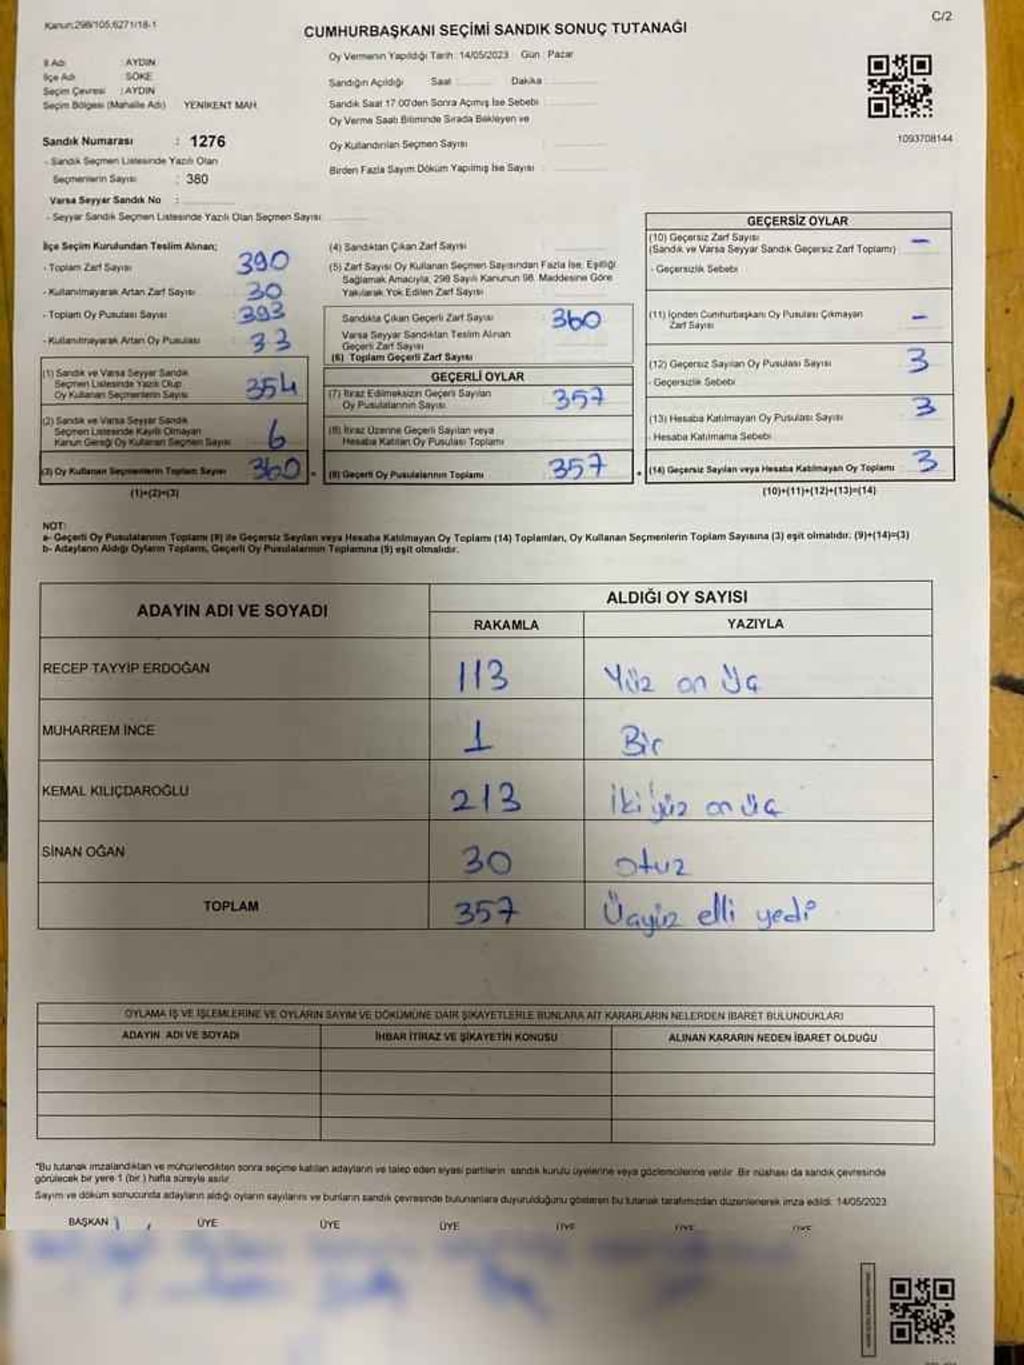 Kanun;298/105,6271/18-1
C/2
CUMHURBAŞKANI SEÇİMİ SANDIK SONUÇ TUTANAĞI
İl Adı : AYDIN
İlçe Adı : SÖKE
Seçim Çevresi : AYDIN
Seçim Bölgesi (Mahalle Adı) YENİKENT MAH.
Sandık Numarası : 1276
- Sandık Seçmen Listesinde Yazılı Olan
Seçmenlerin Sayısı : 380
Varsa Seyyar Sandık No :
- Seyyar Sandık Seçmen Listesinde Yazılı Olan Seçmen Sayısı:
Oy Vermenin Yapıldığı Tarih : 14/05/2023 Gün : Pazar
Sandığın Açıldığı Saat Dakika
Sandık Saat 17.00'den Sonra Açılmış İse Sebebi
Oy Verme Saati Bitiminde Sırada Bekleyen ve
Oy Kullandırılan Seçmen Sayısı
Birden Fazla Sayım Döküm Yapılmış İse Sayısı
1093708144
İlçe Seçim Kurulundan Teslim Alınan;
- Toplam Zarf Sayısı 390
- Kullanılmayarak Artan Zarf Sayısı 30
- Toplam Oy Pusulası Sayısı 393
- Kullanılmayarak Artan Oy Pusulası 33
(1) Sandık ve Varsa Seyyar Sandık
Seçmen Listesinde Yazılı Olup
Oy Kullanan Seçmenlerin Sayısı 354
(2) Sandık ve Varsa Seyyar Sandık
Seçmen Listesinde Kayıtlı Olmayan
Kanun Gereği Oy Kullanan Seçmen Sayısı 6
(3) Oy Kullanan Seçmenlerin Toplam Sayısı 360
(1)+(2)=(3)
(4) Sandıktan Çıkan Zarf Sayısı
(5) Zarf Sayısı Oy Kullanan Seçmen Sayısından Fazla İse, Eşitliği
Sağlamak Amacıyla, 298 Sayılı Kanunun 98. Maddesine Göre
Yakılarak Yok Edilen Zarf Sayısı
Sandıkta Çıkan Geçerli Zarf Sayısı 360
Varsa Seyyar Sandıktan Teslim Alınan
Geçerli Zarf Sayısı
(6) Toplam Geçerli Zarf Sayısı
GEÇERLİ OYLAR
(7) İtiraz Edilmeksizin Geçerli Sayılan
Oy Pusulalarının Sayısı 357
(8) İtiraz Üzerine Geçerli Sayılan veya
Hesaba Katılan Oy Pusulası Toplamı
(9) Geçerli Oy Pusulalarının Toplamı 357
GEÇERSİZ OYLAR
(10) Geçersiz Zarf Sayısı
(Sandık ve Varsa Seyyar Sandık Geçersiz Zarf Toplamı) -
- Geçersizlik Sebebi
(11) İçinden Cumhurbaşkanı Oy Pusulası Çıkmayan
Zarf Sayısı -
(12) Geçersiz Sayılan Oy Pusulası Sayısı 3
- Geçersizlik Sebebi
(13) Hesaba Katılmayan Oy Pusulası Sayısı 3
- Hesaba Katılmama Sebebi
(14) Geçersiz Sayılan veya Hesaba Katılmayan Oy Toplamı 3
(10)+(11)+(12)+(13)=(14)
NOT:
a- Geçerli Oy Pusulalarının Toplamı (9) ile Geçersiz Sayılan veya Hesaba Katılmayan Oy Toplamı (14) Toplamları, Oy Kullanan Seçmenlerin Toplam Sayısına (3) eşit olmalıdır. (9)+(14)=(3)
b- Adayların Aldığı Oyların Toplamı, Geçerli Oy Pusulalarının Toplamına (9) eşit olmalıdır.
ADAYIN ADI VE SOYADI
ALDIĞI OY SAYISI
RAKAMLA YAZIYLA
RECEP TAYYİP ERDOĞAN 113 Yüz on Üç
MUHARREM İNCE 1 Bir
KEMAL KILIÇDAROĞLU 213 İki yüz on üç
SİNAN OĞAN 30 otuz
TOPLAM 357 Üçyüz elli yedi
OYLAMA İŞ VE İŞLEMLERİNE VE OYLARIN SAYIM VE DÖKÜMÜNE DAİR ŞİKAYETLERLE BUNLARA AİT KARARLARIN NELERDEN İBARET BULUNDUKLARI
ADAYIN ADI VE SOYADI İHBAR İTİRAZ VE ŞİKAYETİN KONUSU ALINAN KARARIN NEDEN İBARET OLDUĞU
*Bu tutanak imzalandıktan ve mühürlendikten sonra seçime katılan adayların ve talep eden siyasi partilerin sandık kurulu üyelerine veya gözlemcilerine verilir. Bir nüshası da sandık çevresinde
görülecek bir yere 1 (bir) hafta süreyle asılır.
Sayım ve döküm sonucunda adayların aldığı oyların sayılarını ve bunların sandık çevresinde bulunanlara duyurulduğunu gösteren bu tutanak tarafımızdan düzenlenerek imza edildi. 14/05/2023
BAŞKAN ÜYE ÜYE ÜYE ÜYE ÜYE ÜYE